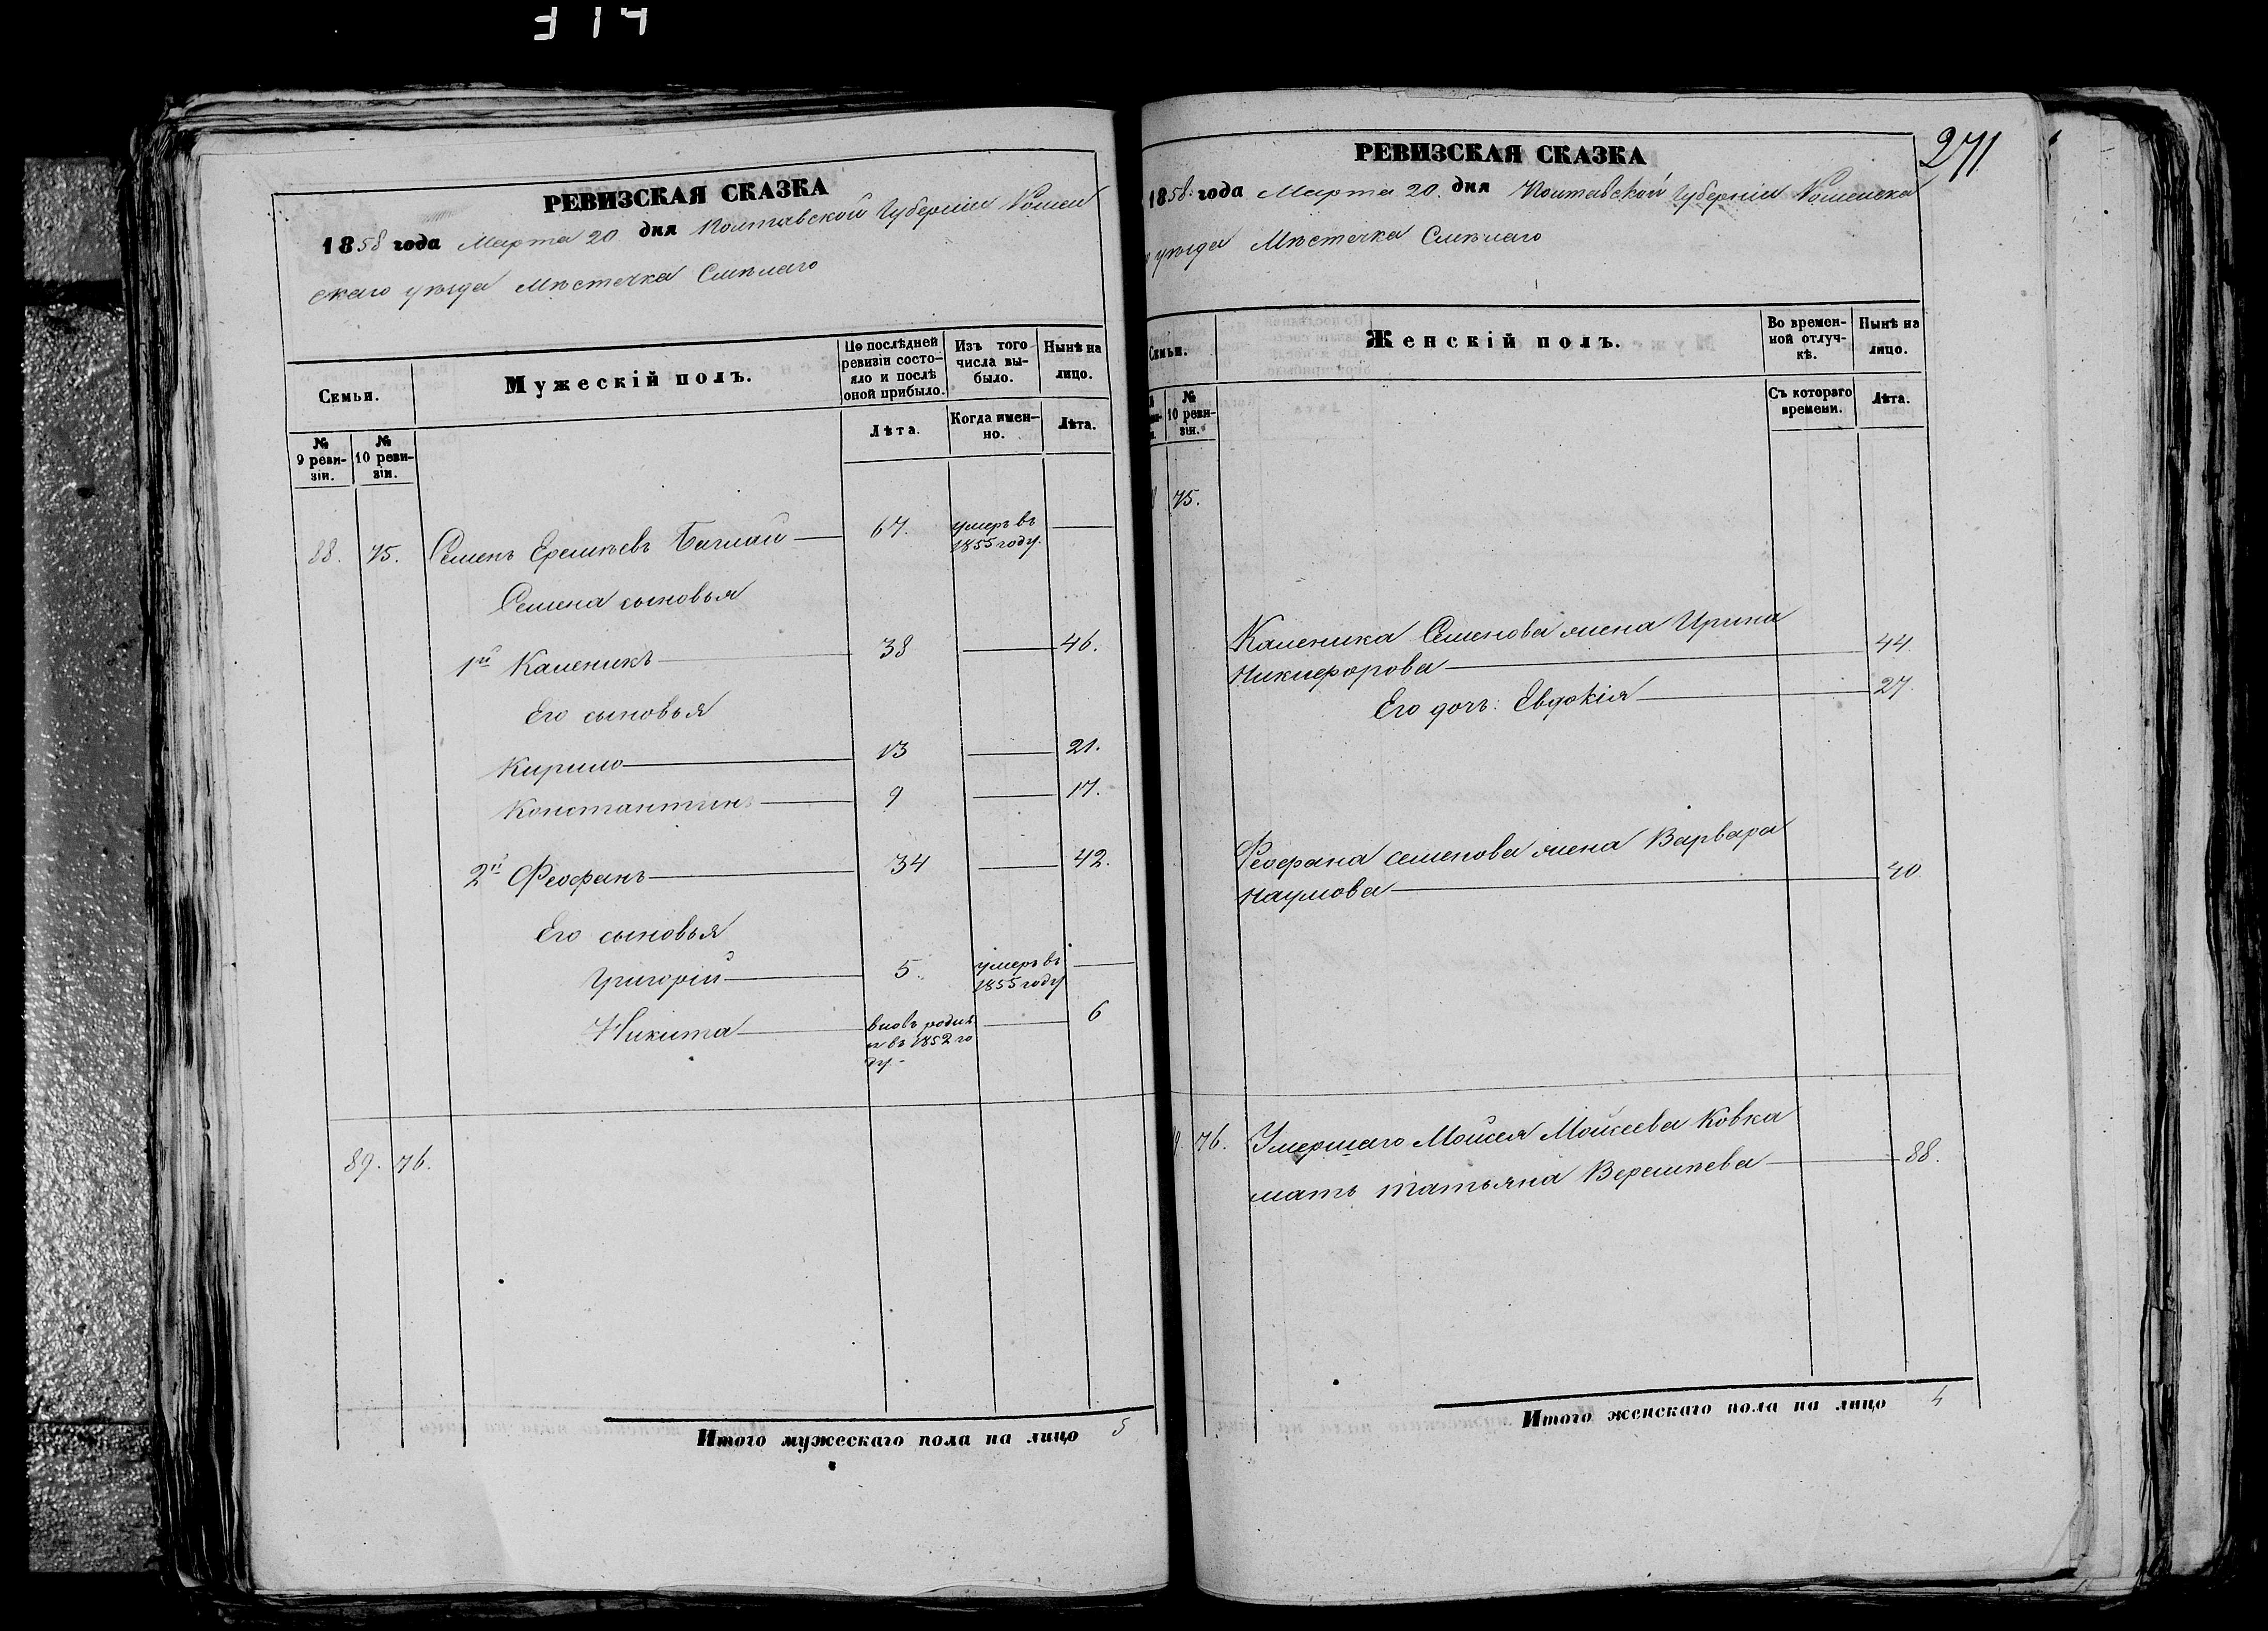 РЕВИЗСКАЯ СКАЗКА
1858 года Марта 20 дня Полтавской Губерніи Ромен
скаго уѣзда Мѣстечка Смѣлаго
Семьи.
Мужескій полъ.
По послѣдней ревизіи состояло и послѣ оной прибыло.
Изъ того числа вы-было.
Нынѣ на лицо.
№ 9 реви-зіи.
№ 10 реви-зіи.
Лѣта.
Когда имен-но.
Лѣта.
88. 75. Семенъ Еремѣевъ Баглай 67. умеръ въ
1855 году.
Семена сыновья
1й Каленикъ 38 46.
Его сыновья
Кирило 13 21.
Константинъ 9 17.
2й Феофанъ 34 42.
Его сыновья
Григорій 5. умеръ въ
1855 году
Никита вновь родил
ся въ 1852 го 6
ду.
89. 76.
Итого мужескаго пола на лицо 5
271
РЕВИЗСКАЯ СКАЗКА
1858 года Марта 20. дня Полтавской Губерніи Роменска
уѣзда Мѣстечка Смѣлаго
Семьи.
Женскій полъ.
Во времен-ной отлуч-кѣ.
Нынѣ на лицо.
№ 10 реви-зіи.
Съ котораго времени.
Лѣта.
75.
Каленика Семенова жена Ирина
Никифорова 44
Его дочь: Евдокія 27.
Феофана семенова жена Варвара
Наумова 40
76. Умершаго Мойсея Мойсеева Ковка
мать татьяна Веремѣева 88.
Итого женскаго пола на лицо 4